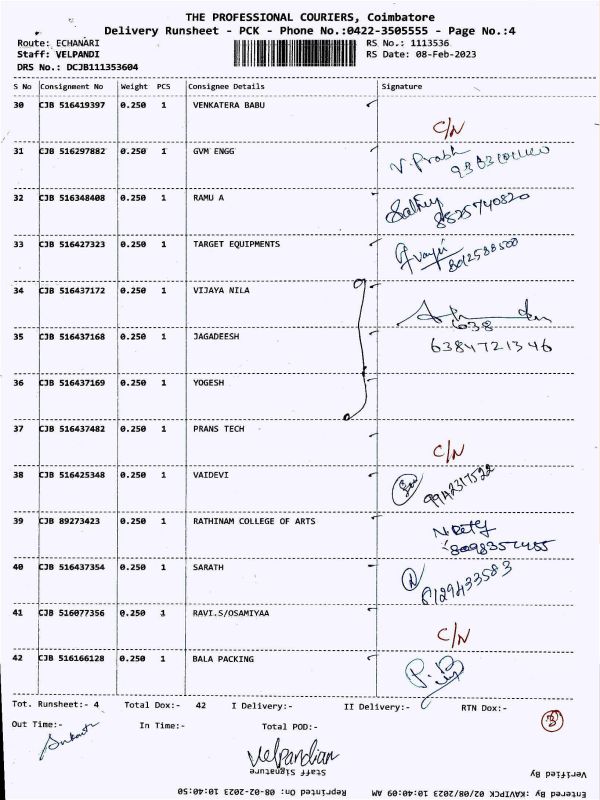 THE PROFESSIONAL COURIERS, Coimbatore
Delivery Runsheet - PCK - Phone No.:0422-3505555 - Page No.:4
Route: ECHANARI RS No.: 1113536
Staff: VELPANDI RS Date: 08-Feb-2023
DRS No.: DCJB111353604
S No Consignment No Weight PCS Consignee Details Signature
30 CJB 516419397 0.250 1 VENKATERA BABU
C/N
31 CJB 516297882 0.250 1 GVM ENGG
V. Prabh
32 CJB 516348408 0.250 1 RAMU A
8825740820
33 CJB 516427323 0.250 1 TARGET EQUIPMENTS
8012588500
34 CJB 516437172 0.250 1 VIJAYA NILA
638
35 CJB 516437168 0.250 1 JAGADEESH
6384721346
36 CJB 516437169 0.250 1 YOGESH
37 CJB 516437482 0.250 1 PRANS TECH
C/N
38 CJB 516425348 0.250 1 VAIDEVI
9942317522
39 CJB 89273423 0.250 1 RATHINAM COLLEGE OF ARTS
40 CJB 516437354 0.250 1 SARATH
41 CJB 516077356 0.250 1 RAVI.S/OSAMIYAA
C/N
42 CJB 516166128 0.250 1 BALA PACKING
Tot. Runsheet:- 4 Total Dox:- 42 I Delivery:- II Delivery:- RTN Dox:-
Out Time:- In Time:- Total POD:-
Velpandian
Staff Signature Verified By
Reprinted On: 08-02-2023 10:40:50 Entered By :KAVIPCK 02/08/2023 10:40:09 AM